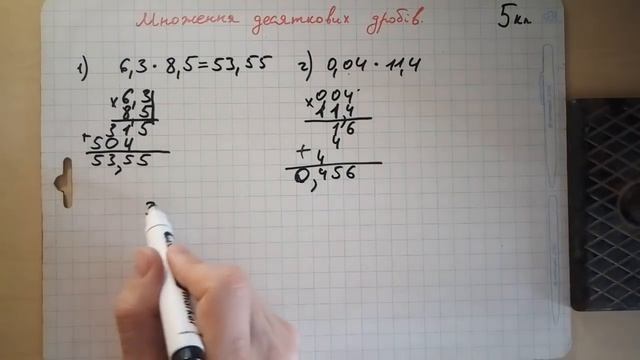 Множення десяткових дробів.
5 кл
1) 6,3 · 8,5 = 53,55
× 6,3
8 5
3 1 5
+ 5 0 4
5 3,5 5
2) 0,04 · 11,4
× 0 0 4
1 1,4
1 6
4
+ 4
0,4 5 6